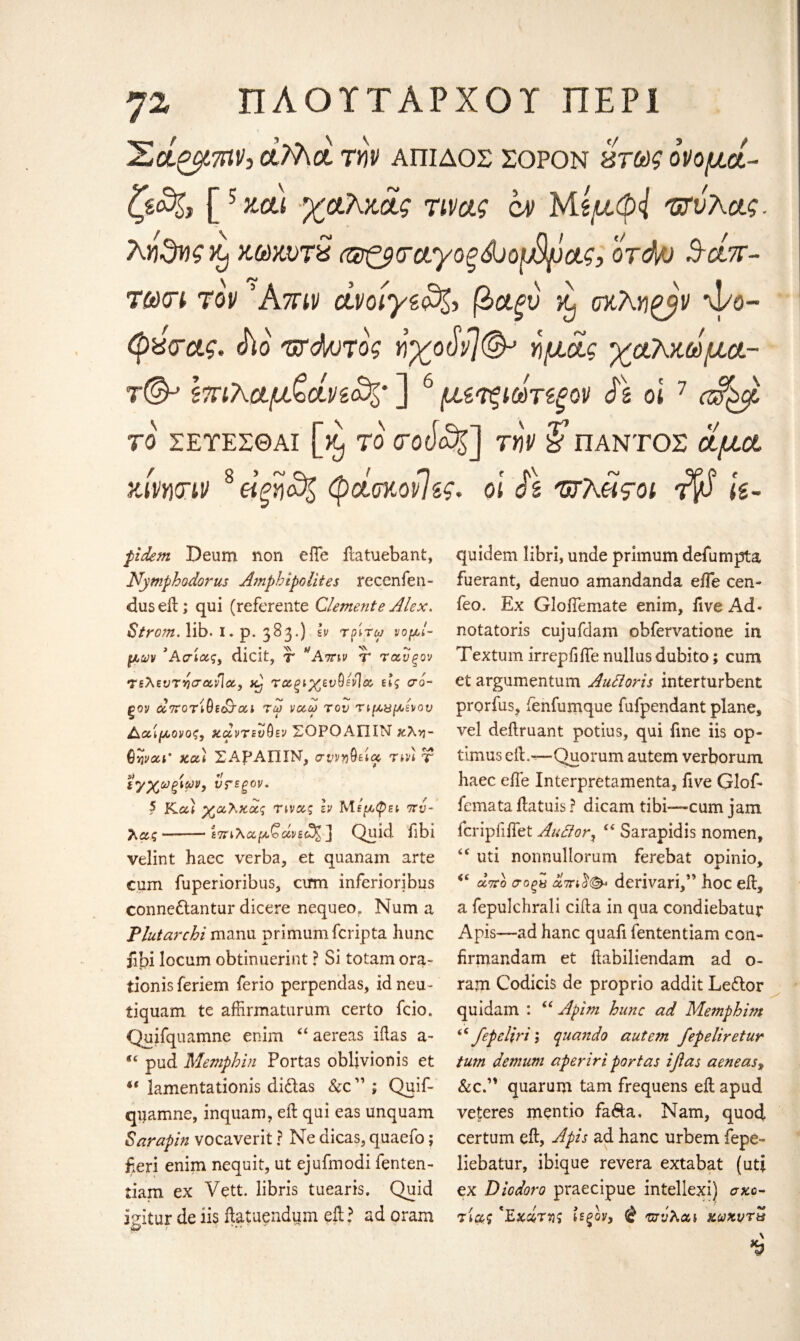 72 ΠΛΟΥΤΑΡΧΟΥ ΠΕΡΙ
Σάραπιν, ἀλλὰ τὴν ΑΠΙΔΟΣ ΣΟΡΟΝ ὅτως ὀνομά-
ζεϑς, [ ⁵ καὶ χαλκᾶς τινας ἐν Μέμφι πύλας
λήθης ϗ κωκυτῦ προσαγορευομένας, ὅταν θάπ-
τωσι τὸν Ἆπιν ἀνοίγεϑς, βαρὺ ϗ σκληρὸν ψο-
φύσας. διὸ παντὸς ἠχοῦντ۞ ἡμᾶς χαλκώμα-
τ۞ ἐπιλαμβάνεϑς· ] ⁶ μετριώτερον δὲ οἱ ⁷ παρὰ
τὸ ΣΕΥΕΣΘΑΙ [ϗ τὸ σοῦϑς] τὴν τῦ ΠΑΝΤΟΣ ἅμα
κίνησιν ⁸ εἰρῆϑς φάσκοντες. οἱ δὲ πλεῖστοι τῶν ἱε-
pidem Deum non esse statuebant,
Nymphodorus Amphipolites recensen-
dus est ; qui (referente Clemente Alex.
Strom. lib. 1. p. 383.) ἐν τρίτῳ νομί-
μων Ἀσίας, dicit, τ Ἄπιν τ ταῦρον
τελευτήσαντα, ϗ ταριχευθέντα εἰς σο-
ρὸν ἀποτίθεσθαι τῷ ναῷ τοῦ τιμωμένου
Δαίμονος, κἀντεῦθεν ΣΟΡΟΑΠΙΝ κλη-
θῆναι· καὶ ΣΑΡΑΠΙΝ, συνηθείᾳ τινὶ τ
ἐγχωρίων, ὕστερον.
5 Καὶ χαλκᾶς τινας ἐν Μέμφει πύ-
λας —— ἐπιλαμβάνεϑς ] Quid sibi
velint haec verba, et quanam arte
cum superioribus, cum inferioribus
connectantur dicere nequeo. Num a
Plutarchi manu primum scripta hunc
sibi locum obtinuerint ? Si totam ora-
tionis seriem serio perpendas, id neu-
tiquam te affirmaturum certo scio.
Quisquamne enim “ aereas istas a-
“ pud Memphin Portas oblivionis et
“ lamentationis dictas &c” ; Quis-
quamne, inquam, est qui eas unquam
Sarapin vocaverit ? Ne dicas, quaeso ;
fieri enim nequit, ut ejusmodi senten-
tiam ex Vett. libris tuearis. Quid
igitur de iis statuendum est ? ad oram
quidem libri, unde primum desumpta
fuerant, denuo amandanda esse cen-
seo. Ex Glossemate enim, sive Ad-
notatoris cujusdam observatione in
Textum irrepsisse nullus dubito ; cum
et argumentum Auctoris interturbent
prorsus, sensumque suspendant plane,
vel destruant potius, qui sine iis op-
timus est.—Quorum autem verborum
haec esse Interpretamenta, sive Glos-
semata statuis ? dicam tibi—cum jam
scripsisset Auctor, “ Sarapidis nomen,
“ uti nonnullorum ferebat opinio,
“ ἀπὸ σορῦ ἄπιδ۞ derivari,” hoc est,
a sepulchrali cista in qua condiebatur
Apis—ad hanc quasi sententiam con-
firmandam et stabiliendam ad o-
ram Codicis de proprio addit Lector
quidam : “ Apim hunc ad Memphim
“ sepeliri ; quando autem sepeliretur
tum demum aperiri portas istas aeneas,
&c.” quarum tam frequens est apud
veteres mentio facta. Nam, quod
certum est, Apis ad hanc urbem sepe-
liebatur, ibique revera extabat (uti
ex Diodoro praecipue intellexi) σκο-
τίας Ἑκάτης ἱερὸν, ϗ πύλαι κωκυτῦ
ϗ